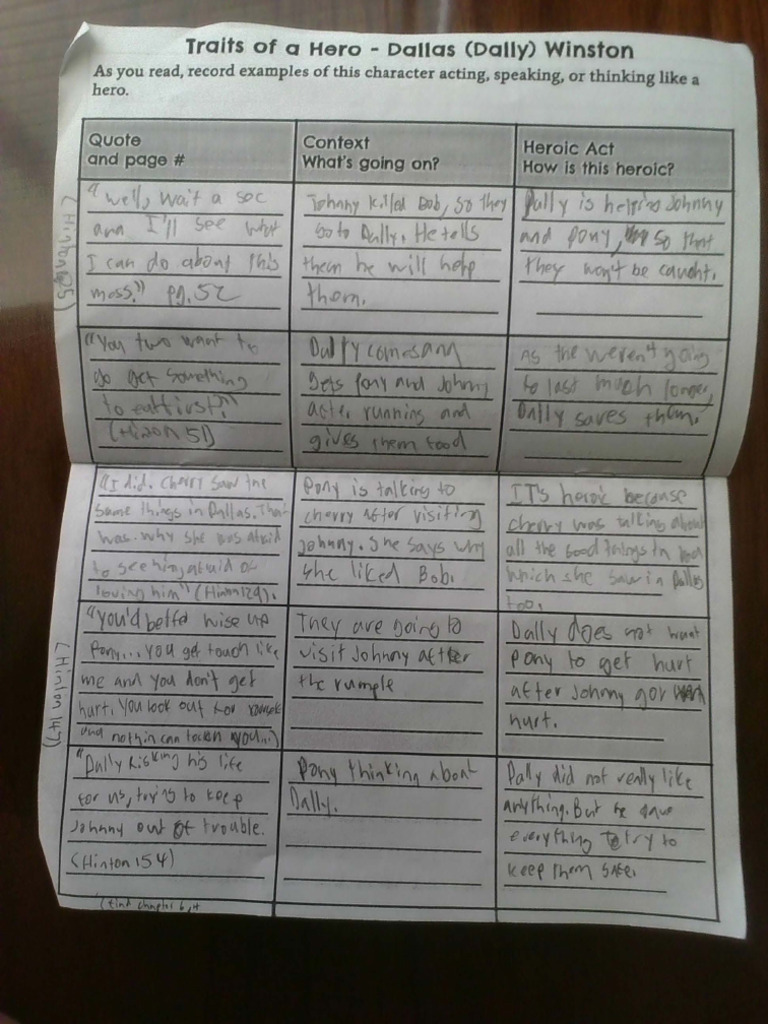 Traits of a Hero - Dallas (Dally) Winston
As you read, record examples of this character acting, speaking, or thinking like a
hero.
Quote
and page #
Context
What's going on?
Heroic Act
How is this heroic?
"Well, wait a sec
and I'll see what
I can do about this
mess." pg. 52
Johnny killed Bob, so they
go to Dally. He tells
them he will help
them.
Dally is helping Johnny
and Pony, so that
they won't be caught.
"You two want to
go get something
to eat first?"
(Hinon 51)
Dally comes and
gets Pony and Johnny
running and
gives them food
As the weren't going
to last much longer,
Dally saves them.
"I did. Cherry saw the
same things in Dallas. That
was why she was afraid
to see him, afraid of
loving him" (Hinon 129).
Pony is talking to
cherry after visiting
Johnny. She says why
she liked Bob.
IT's heroic because
cherry was talking about
all the good things in
which she saw in Dallas
too.
"You'd better wise up
Pony... you get tough like
me and you don't get
hurt. You look out for yourself
and nothin can touch you...)
(Hinton 147)
They are going to
visit Johnny after
the rumple
Dally does not want
Pony to get hurt
after Johnny got
hurt.
"Dally Risking his life
for us, trying to keep
Johnny out of trouble.
(Hinton 154)
Pony thinking about
Dally.
Dally did not really like
anything. But he gave
everything to try to
keep them safe.
(find chapter 6,4